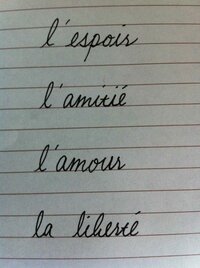 l'espoir
l'amitié
l'amour
la liberté